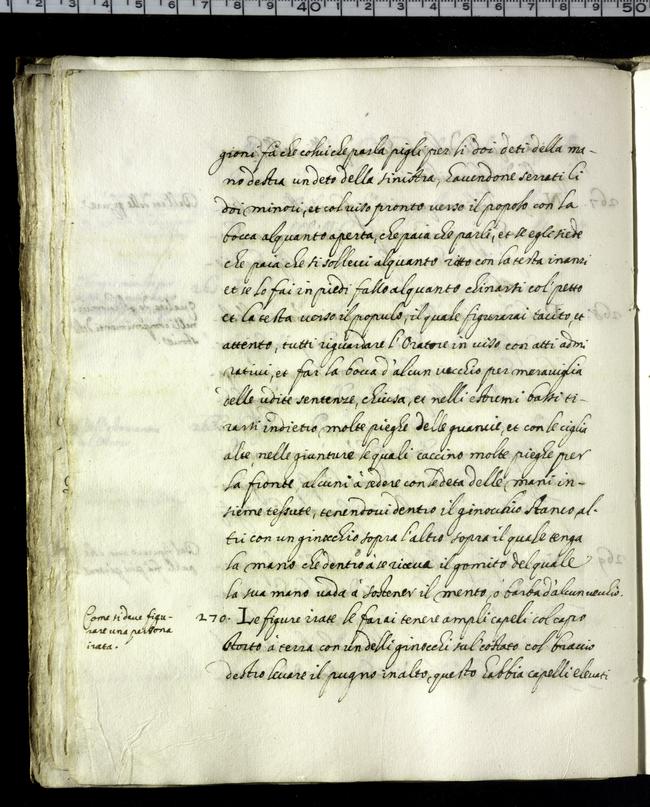 gioni fà che colui che parla pigli per li doi deti della ma-
no destra un deto della sinistra, havendone serrati li
doi minori, et col viso pronto verso il popolo con la
bocca alquanto aperta, che paia che parli, et se egli siede
che paia che si sollevi alquanto ritto con la testa inanzi
et se lo fai in piedi fallo alquanto chinarsi col petto
et la testa verso il populo, il quale figurarai tacito, et
attento, tutti riguardare l'Oratore in viso con atti admi
rativi, et far la bocca d'alcun vecchio per meraviglia
delle udite sentenze, chiusa, et nelli estremi bassi ti-
rarsi indietro molte pieghe delle guancie, et con le ciglia
alte nelle giunture le quali faccino molte pieghe per
la fronte alcuni à sedere con le deta delle mani in-
sieme tessute, tenendovi dentro il ginocchio stanco, al-
tri con un ginocchio sopra l'altro sopra il quale tenga
la mano che dentro à se riceva il gomito del quale
la sua mano vada à sostener il mento, ò barba d'alcun vecchio.
Come si deve figu-
rare una persona
irata.
270. Le figure irate le farai tenere ampli capeli col capo
storto à terra con un delli ginocchi sul costato col braccio
destro levare il pugno in alto, questo habbia capelli elevati